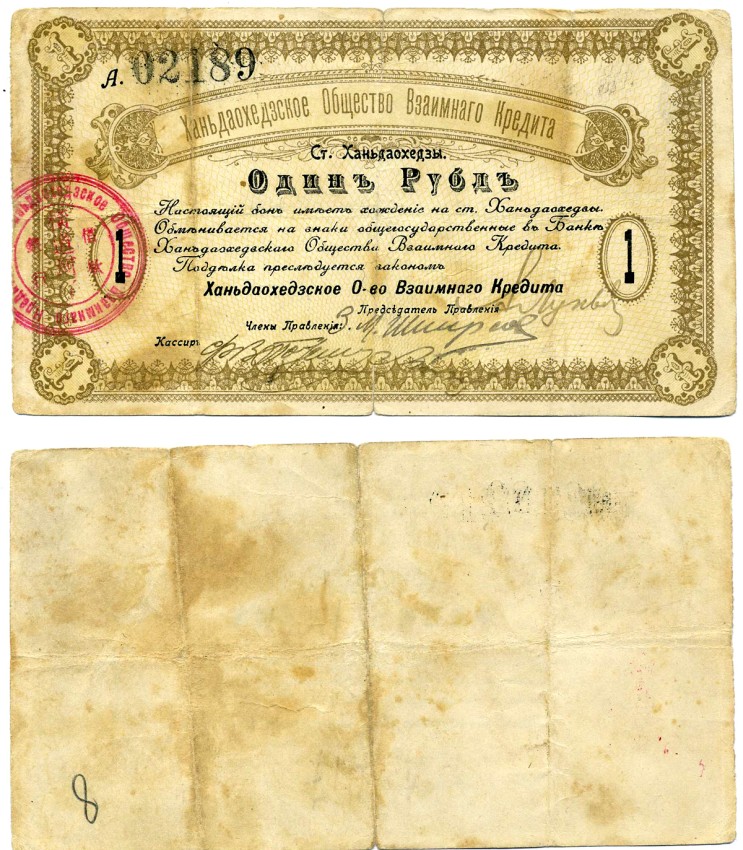 1 1
А. 02189
Ханьдаохедзское Общество Взаимнаго Кредита
Ст. Ханьдаохедзы.
Одинъ Рубль
Настоящій бонъ имѣетъ хожденіе на ст. Ханьдаохедзы.
Обмѣнивается на знаки общегосударственные въ Банкѣ
Ханьдаохедзскаго Общества Взаимнаго Кредита.
Поддѣлка преслѣдуется закономъ
1 1
Ханьдаохедзское О-во Взаимнаго Кредита
Предсѣдатель Правленія
Члены Правленія:
Кассиръ
1 1
Общество Взаимнаго
8